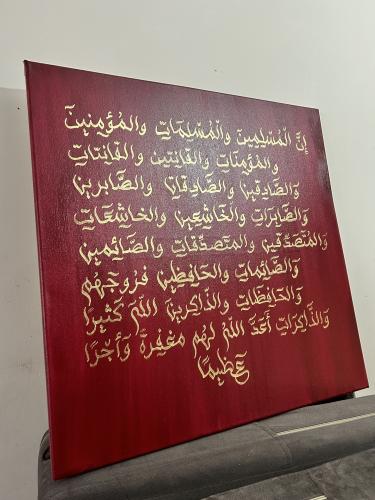 إِنَّ الْمُسْلِمِينَ وَالْمُسْلِمَاتِ وَالْمُؤْمِنِينَ
وَالْمُؤْمِنَاتِ وَالْقَانِتِينَ وَالْقَانِتَاتِ
وَالصَّادِقِينَ وَالصَّادِقَاتِ وَالصَّابِرِينَ
وَالصَّابِرَاتِ وَالْخَاشِعِينَ وَالْخَاشِعَاتِ
وَالْمُتَصَدِّقِينَ وَالْمُتَصَدِّقَاتِ وَالصَّائِمِينَ
وَالصَّائِمَاتِ وَالْحَافِظِينَ فُرُوجَهُمْ
وَالْحَافِظَاتِ وَالذَّاكِرِينَ اللَّهَ كَثِيرًا
وَالذَّاكِرَاتِ أَعَدَّ اللَّهُ لَهُم مَّغْفِرَةً وَأَجْرًا
عَظِيمًا